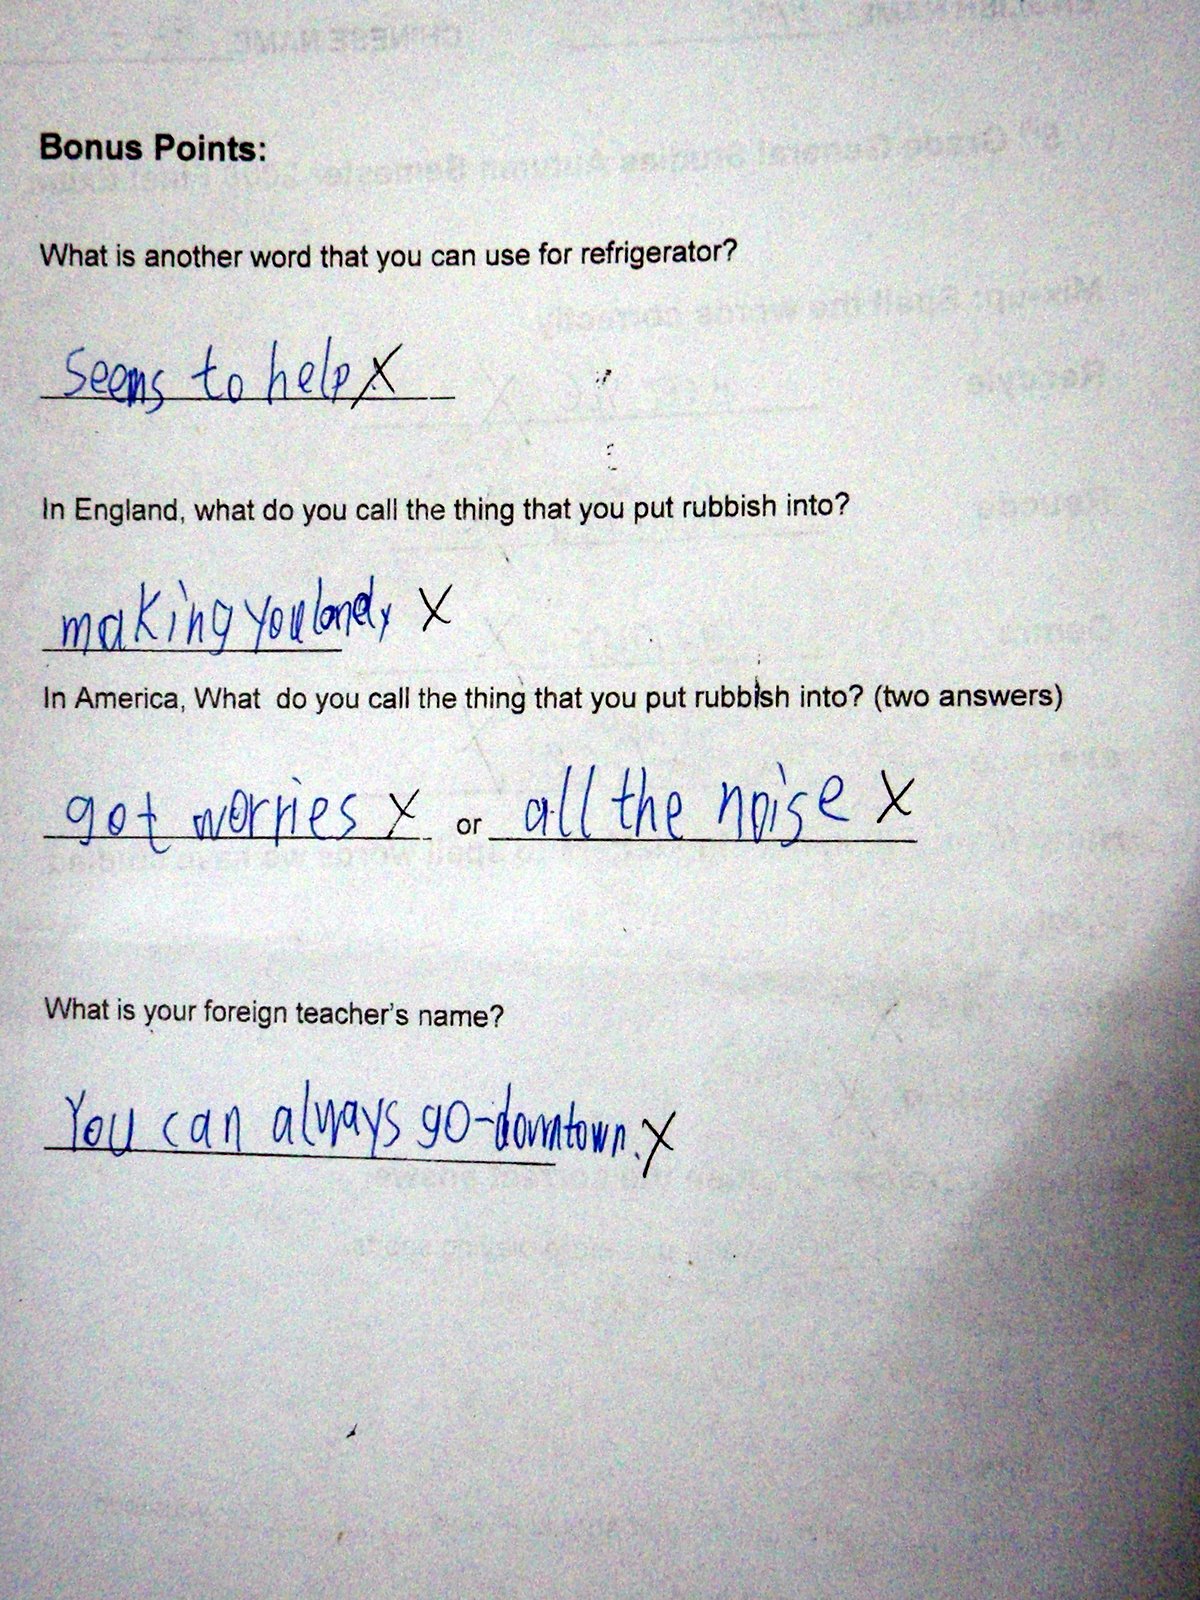 Bonus Points:
What is another word that you can use for refrigerator?
Seems to help X
In England, what do you call the thing that you put rubbish into?
making you lonely X
In America, What do you call the thing that you put rubbish into? (two answers)
got worries X or all the noise X
What is your foreign teacher's name?
You can always go-downtown. X